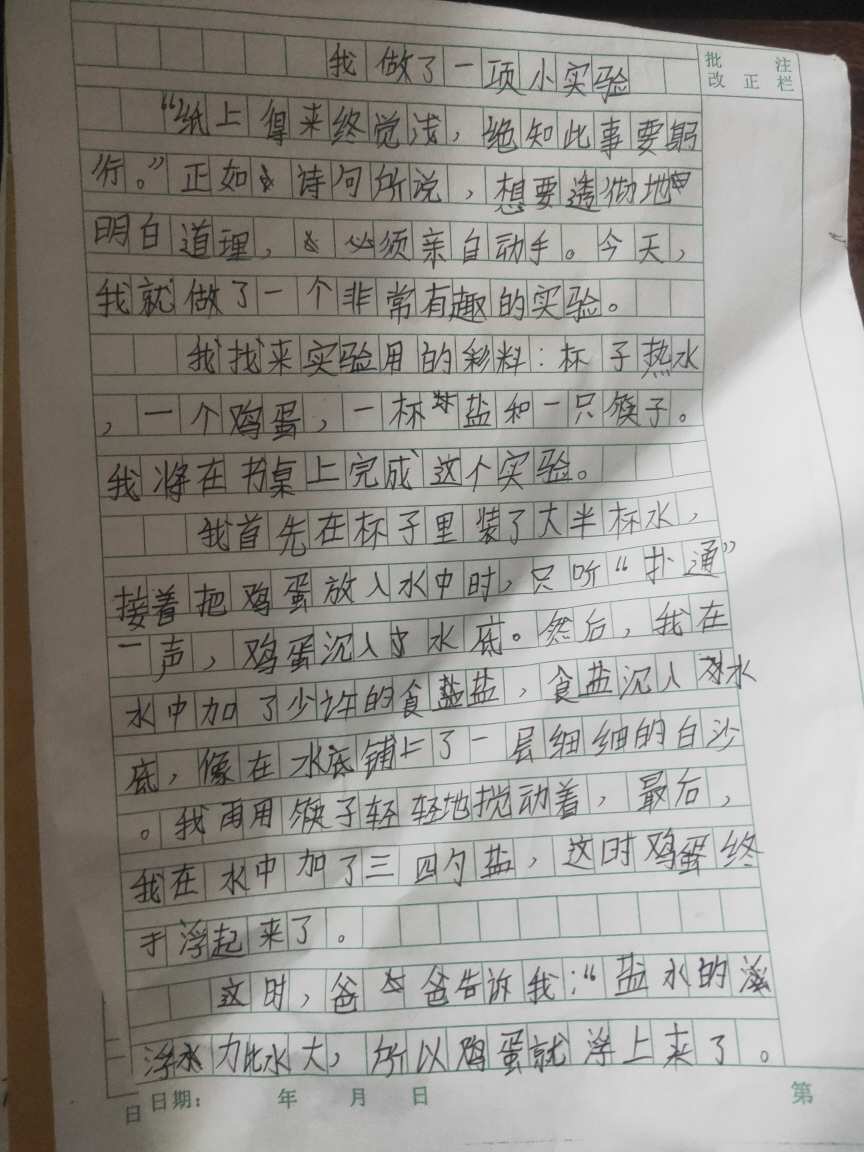 我做了一项小实验
批注
改正栏
“纸上得来终觉浅，绝知此事要躬
行。”正如诗句所说，想要透彻地
明白道理，必须亲自动手。今天，
我就做了一个非常有趣的实验。
我找来实验用的彩料：杯子热水
，一个鸡蛋，一杯盐和一只筷子。
我将在书桌上完成这个实验。
我首先在杯子里装了大半杯水，
接着把鸡蛋放入水中时，只听“扑通”
一声，鸡蛋沉入水底。然后，我在
水中加了少许的食盐，食盐沉入水
底，像在水底铺上了一层细细的白沙
。我再用筷子轻轻地搅动着，最后，
我在水中加了三四勺盐，这时鸡蛋终
于浮起来了。
这时，爸爸告诉我：“盐水的
浮力比水大，所以鸡蛋就浮上来了。
日日期： 年 月 日 第